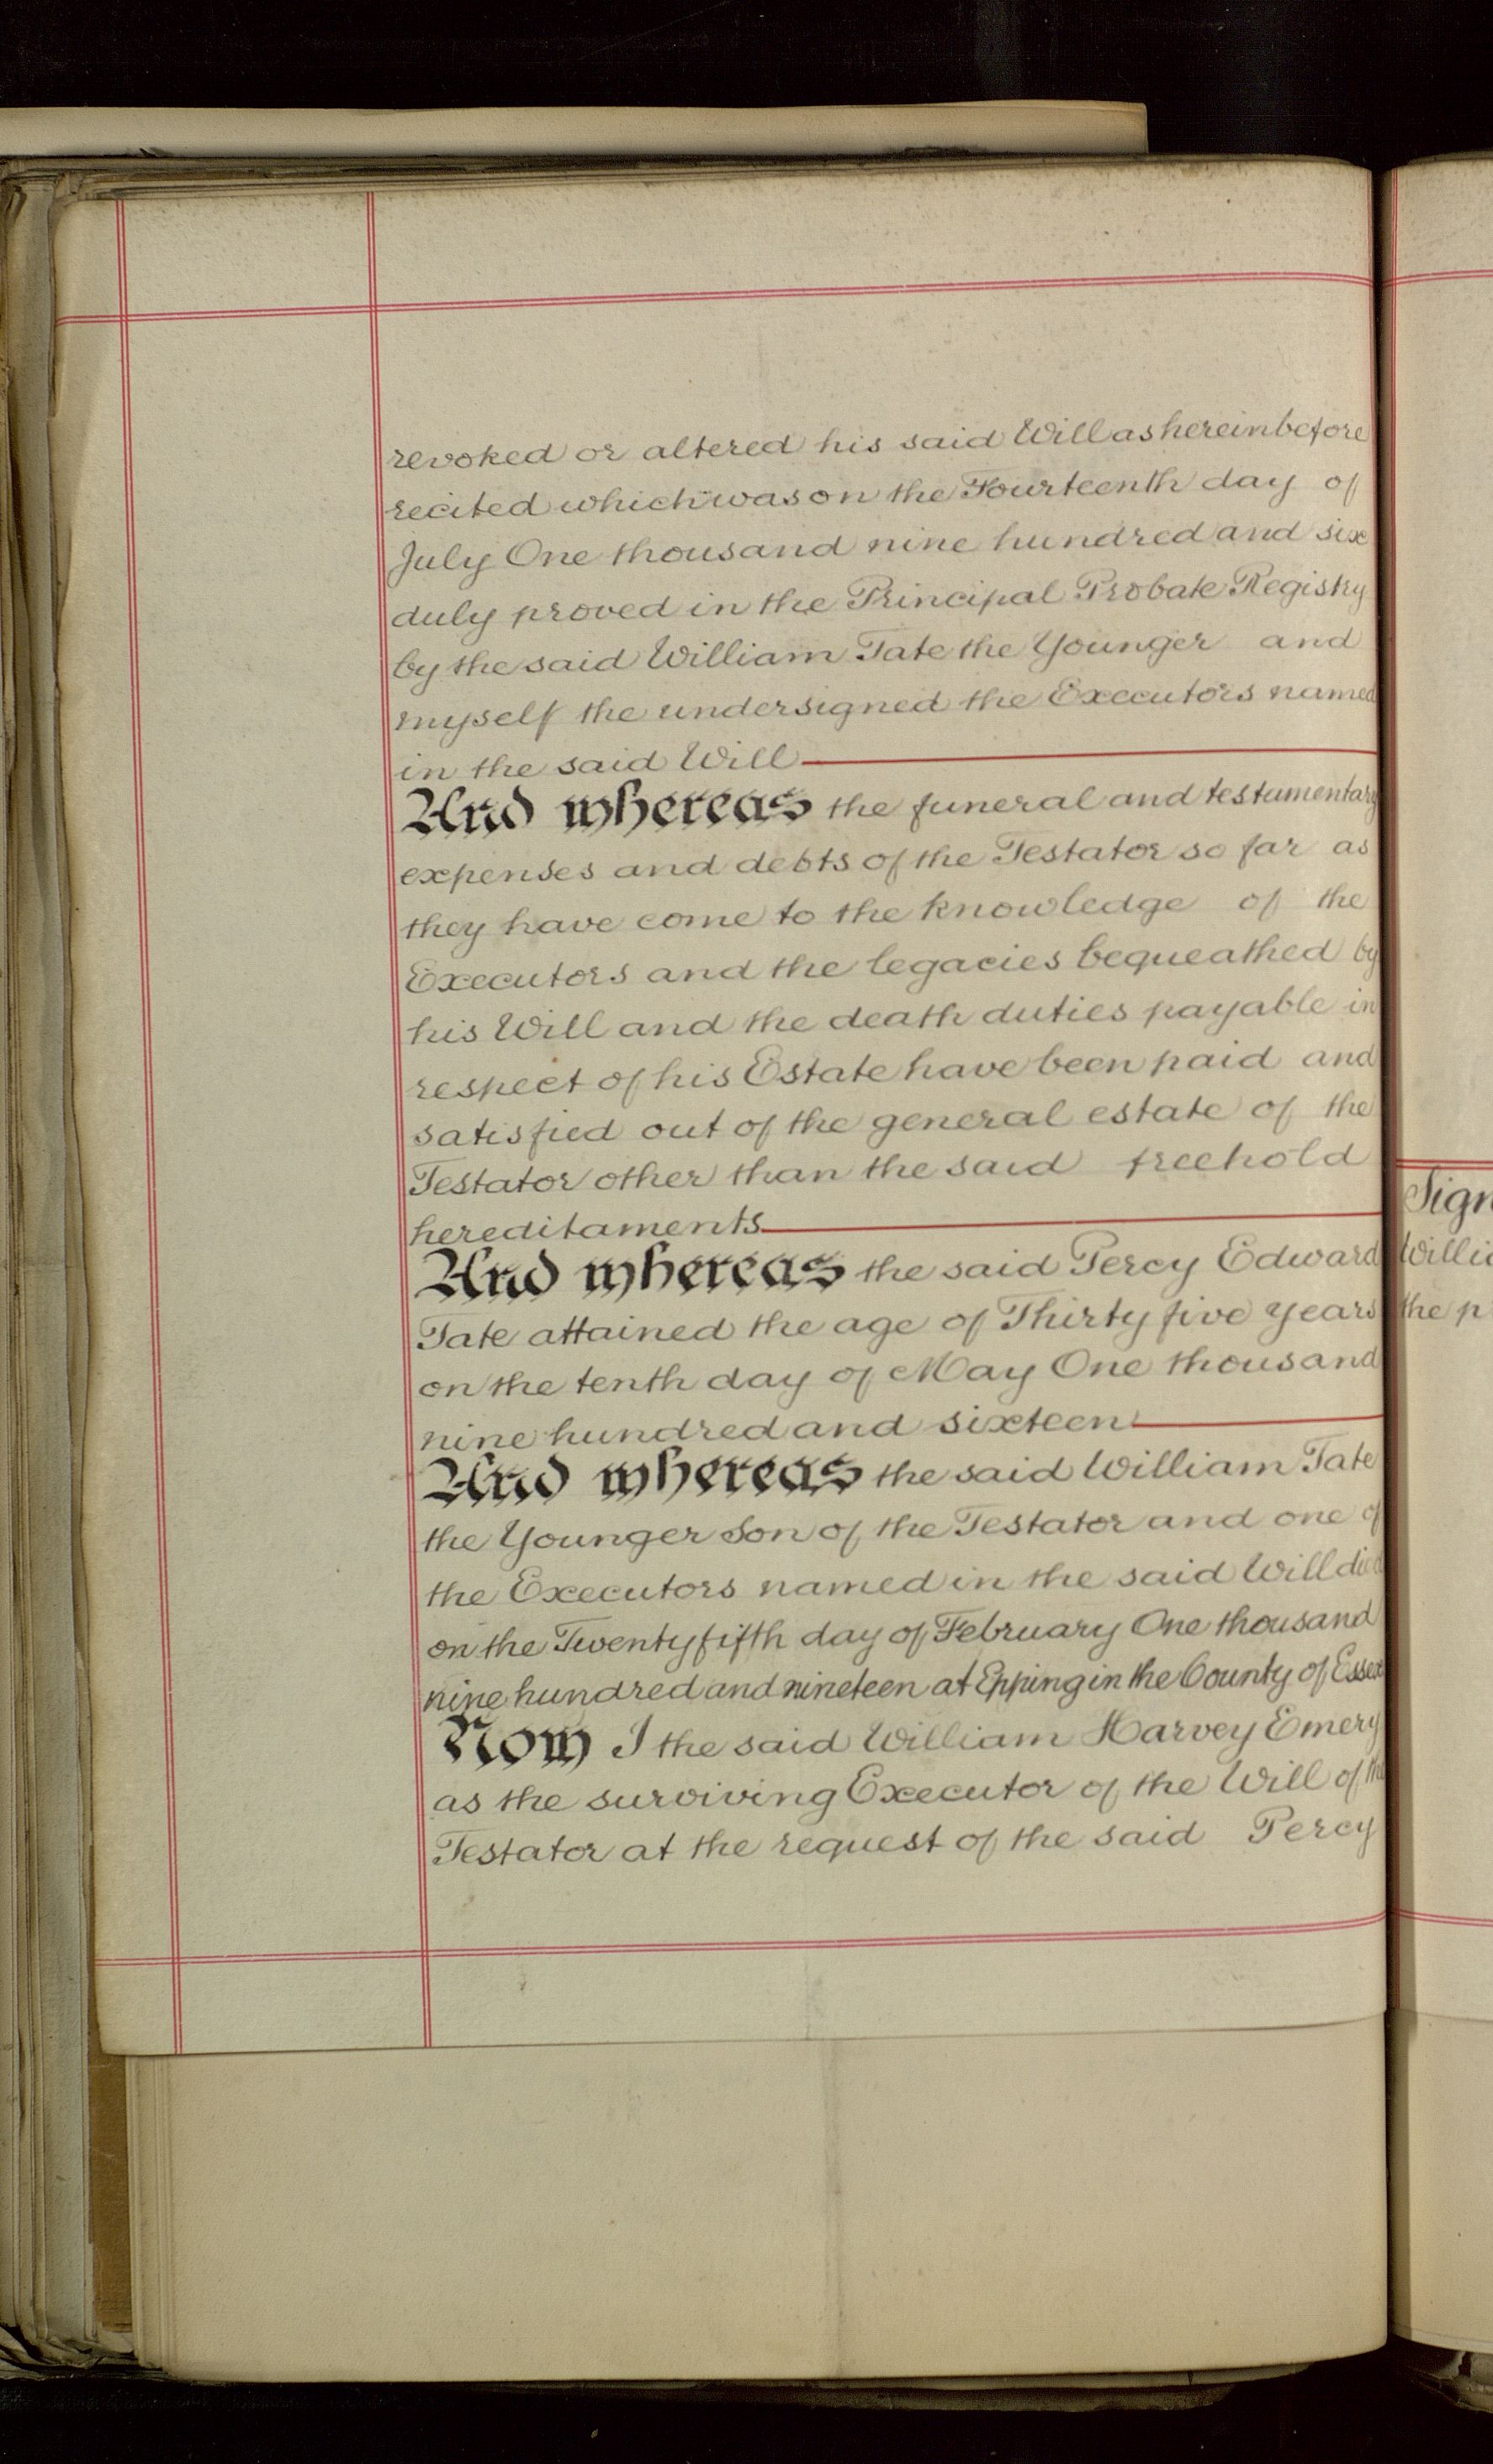 revoked or altered his said Will as hereinbefore
recited which was on the Fourteenth day of
July One thousand nine hundred and six
duly proved in the Principal Probate Registry
by the said William Tate the Younger and
myself the undersigned the Executors named
in the said Will
And whereas the funeral and testamentary
expenses and debts of the Testator so far as
they have come to the knowledge of the
Executors and the legacies bequeathed by
his Will and the death duties payable in
respect of his Estate have been paid and
satisfied out of the general estate of the
Testator other than the said freehold
hereditaments
And whereas the said Percy Edward
Tate attained the age of Thirty five years
on the tenth day of May One thousand
nine hundred and sixteen
And whereas the said William Tate
the Younger Son of the Testator and one of
the Executors named in the said Will died
on the Twenty fifth day of February One thousand
nine hundred and nineteen at Epping in the County of Essex
Now I the said William Harvey Emery
as the surviving Executor of the Will of the
Testator at the request of the said Percy
Sign
Willia
the p